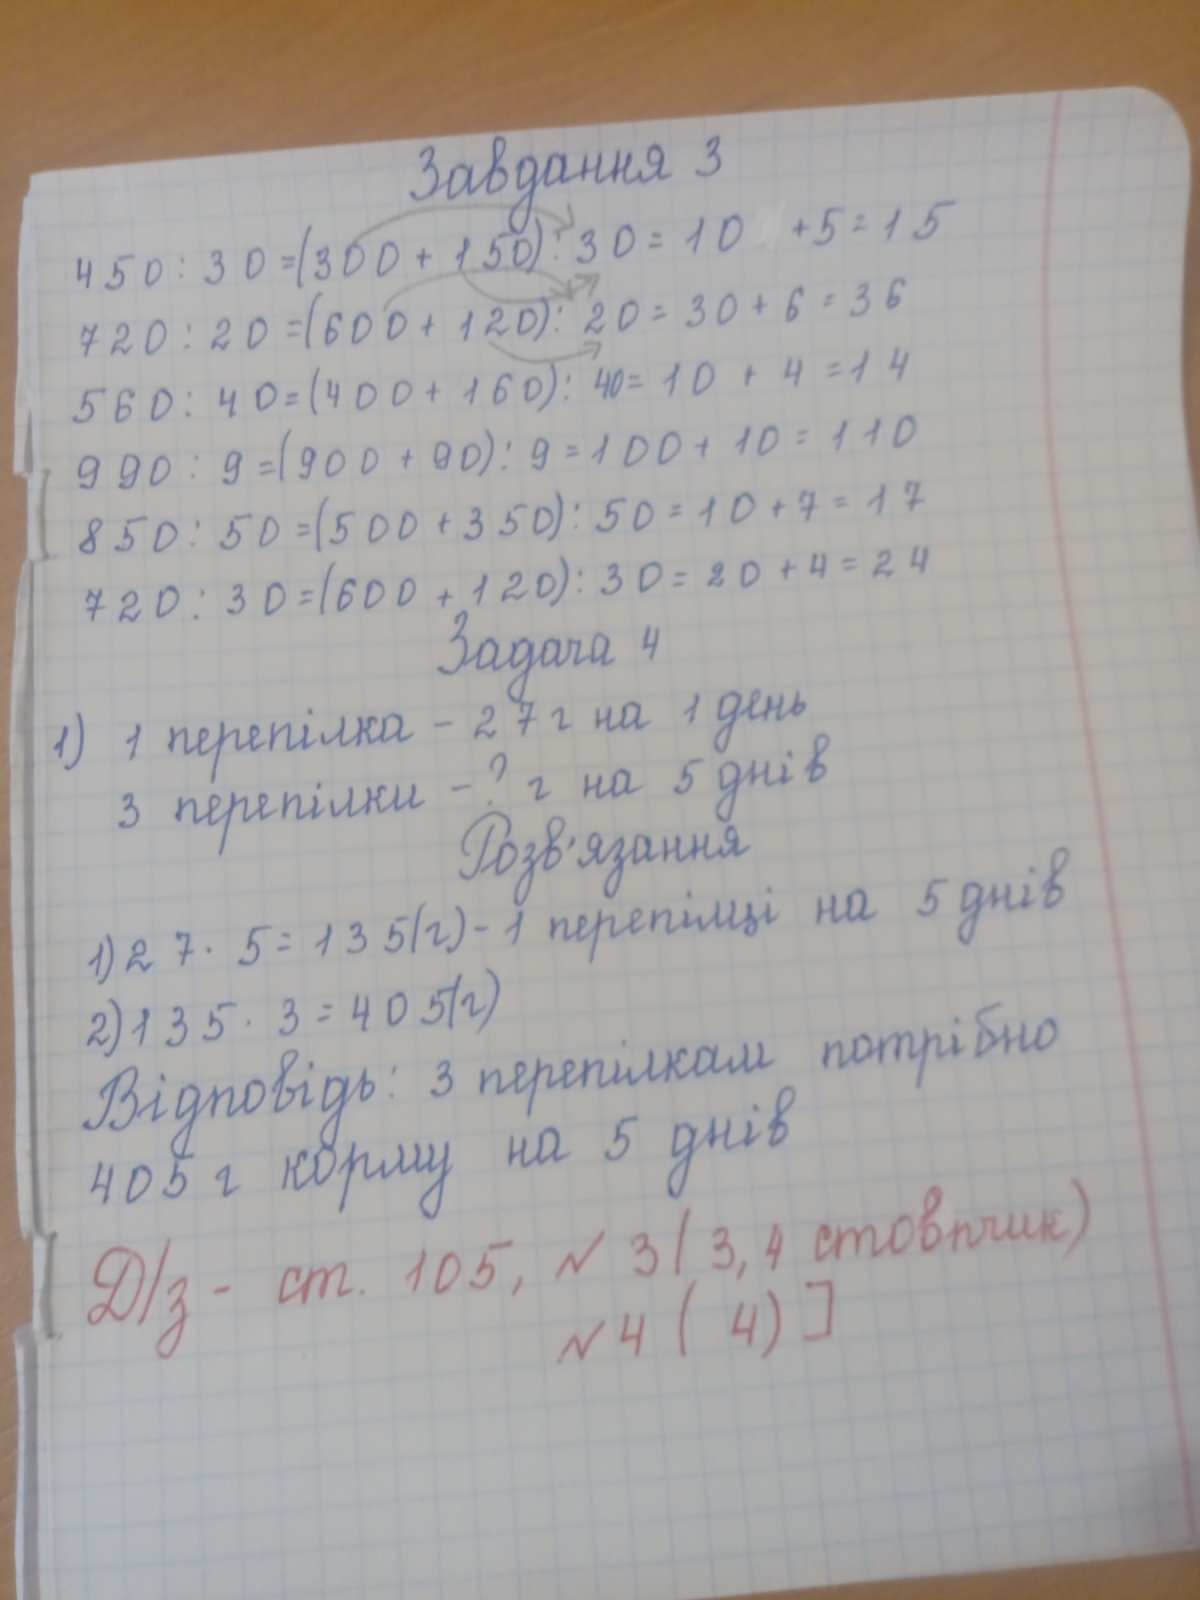 Завдання 3
450 : 30 = (300 + 150) : 30 = 10 + 5 = 15
720 : 20 = (600 + 120) : 20 = 30 + 6 = 36
560 : 40 = (400 + 160) : 40 = 10 + 4 = 14
990 : 9 = (900 + 90) : 9 = 100 + 10 = 110
850 : 50 = (500 + 350) : 50 = 10 + 7 = 17
720 : 30 = (600 + 120) : 30 = 20 + 4 = 24
Задача 4
1) 1 перепілка – 27 г на 1 день
3 перепілки – ? г на 5 днів
Розв'язання
1) 27 · 5 = 135 (г) – 1 перепілці на 5 днів
2) 135 · 3 = 405 (г)
Відповідь: 3 перепілкам потрібно
405 г корму на 5 днів
Д/з – ст. 105, № 3 (3, 4 стовпчик)
№ 4 ( 4) ]